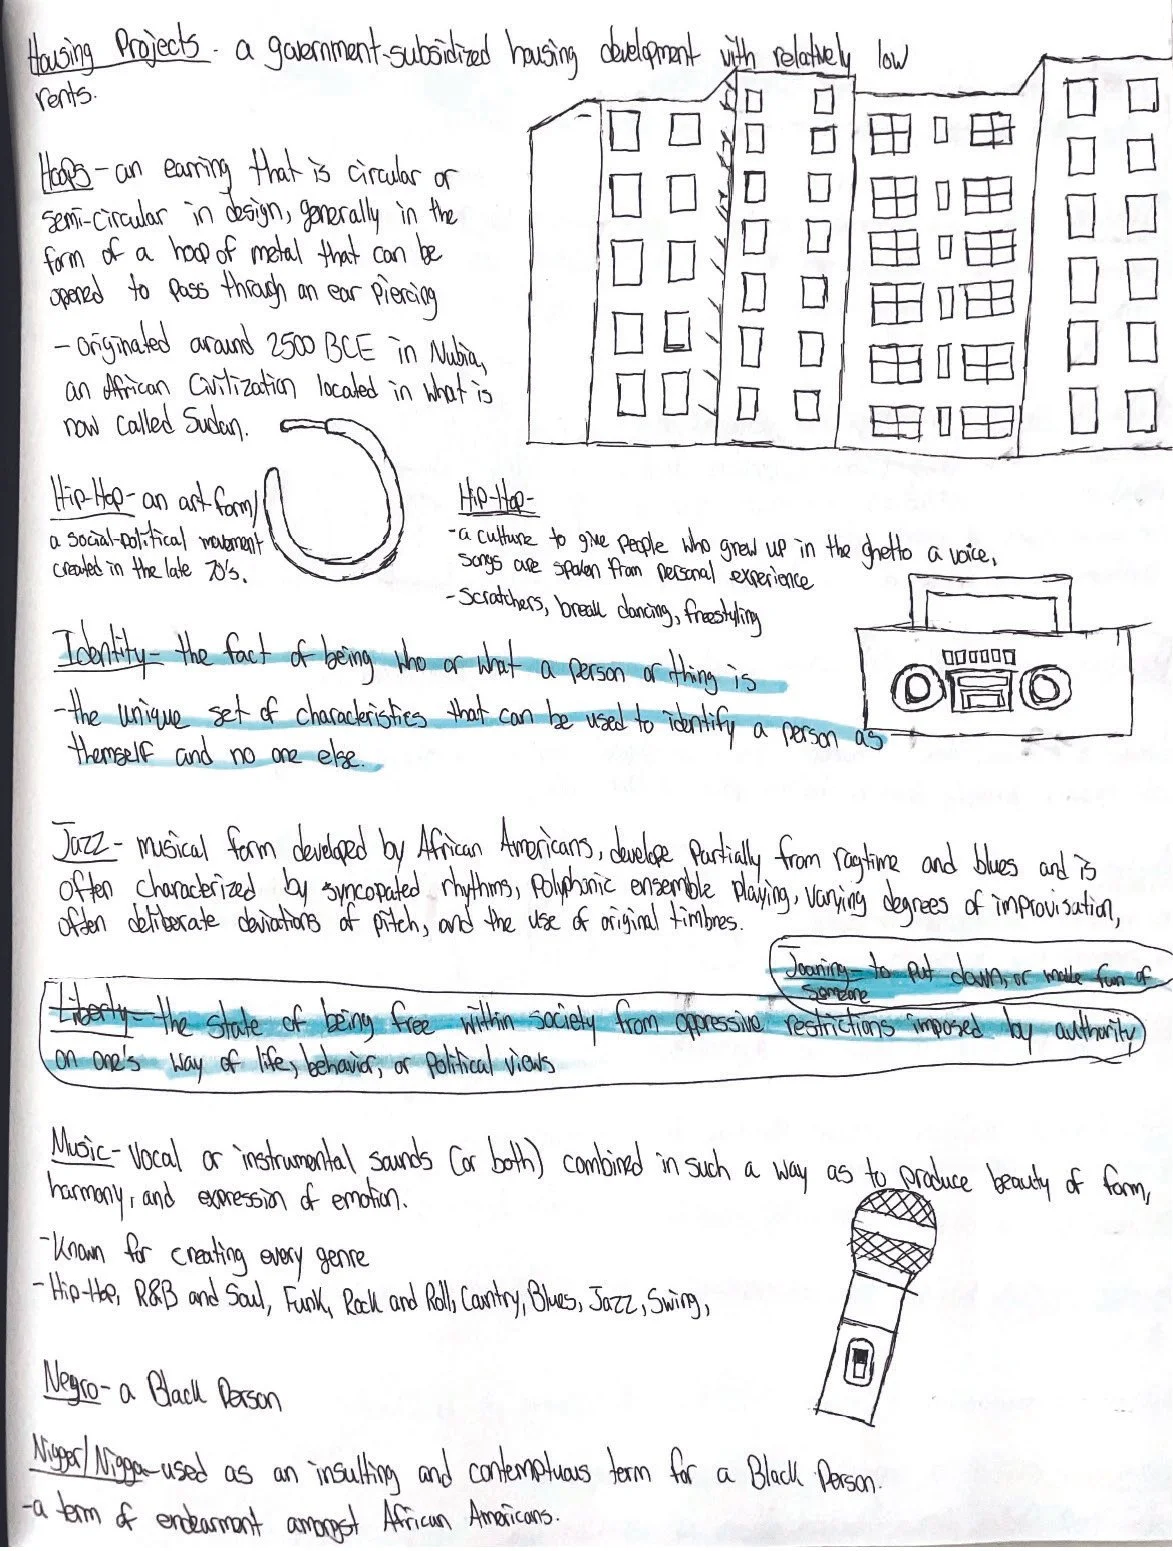 Housing Projects - a government-subsidized housing development with relatively low
rents.
Hoops - an earring that is circular or
semi-circular in design, generally in the
form of a hoop of metal that can be
opened to pass through an ear piercing
- originated around 2500 BCE in Nubia,
an African Civilization located in what is
now called Sudan.
Hip-Hop - an art-form/
a social-political movement
created in the late 70's.
Hip-Hop-
- a culture to give people who grew up in the ghetto a voice,
songs are spoken from personal experience
- Scratchers, break dancing, freestyling
Identity - the fact of being who or what a person or thing is
- the unique set of characteristics that can be used to identify a person as
themself and no one else.
Jazz - musical form developed by African Americans, develope partially from ragtime and blues and is
often characterized by syncopated rhythms, polyphonic ensemble playing, varying degrees of improvisation,
often deliberate deviations of pitch, and the use of original timbres.
Joaning - to put down, or make fun of
someone
Liberty - the state of being free within society from oppressive restrictions imposed by authority
on one's way of life, behavior, or political views
Music - vocal or instrumental sounds (or both) combined in such a way as to produce beauty of form,
harmony, and expression of emotion.
- Known for creating every genre
- Hip-Hop, R&B and Soul, Funk, Rock and Roll, Country, Blues, Jazz, Swing,
Negro - a Black Person
Nigger/Nigga - used as an insulting and contemptuous term for a Black Person.
- a term of endearment amongst African Americans.